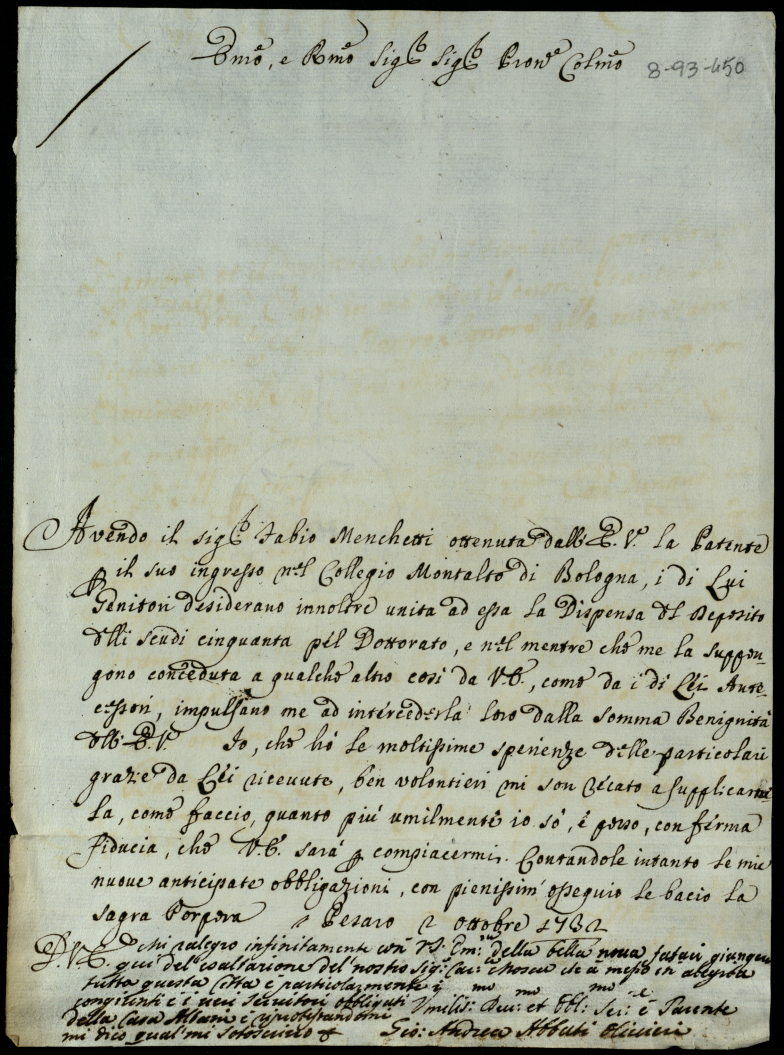 Emo, e Rmo Sigr Sigr Prone Colmo
8-93-450
Avendo il Sigr Fabio Menchetti ottenuta dall' E. V. la Patente
p il suo ingresso nel Collegio Montalto di Bologna, i di Lui
Genitori desiderano innoltre unita ad essa la Dispensa del Deposito
delli scudi cinquanta pel Dottorato, e nel mentre che me la suppon-
gono conceduta a qualche altro così da V. E., come da i di Lei Ante-
cessori, impulsano me ad intercederla loro dalla somma Benignità
dell' E. V. Io, che hò le moltissime sperienze delle particolari
grazie da Lei ricevute, ben volontieri mi son recato a supplicarne
la, come faccio, quanto più umilmente io sò, e posso, con ferma
fiducia, che V. E. sarà p compiacermi. Contandole intanto le mie
nuove anticipate obbligazioni, con pienissim' ossequio le bacio la
sagra Porpora Pesaro 2 ottobre 1732
D. V. E. chi ralegro infinitamente con V. Em: della bella nova
qui del' esaltatione del' nostro Sig: Car: che à messo in alegria
tutta questa città e particolarmente i
congiunti e i veri servitori obbligati Umiliss: Dev: et Obl: Ser: e Parente
della Casa Albani e riprotestandomi
mi dico qual' mi sotoscrivo Gio: Andrea Abbati Olivieri